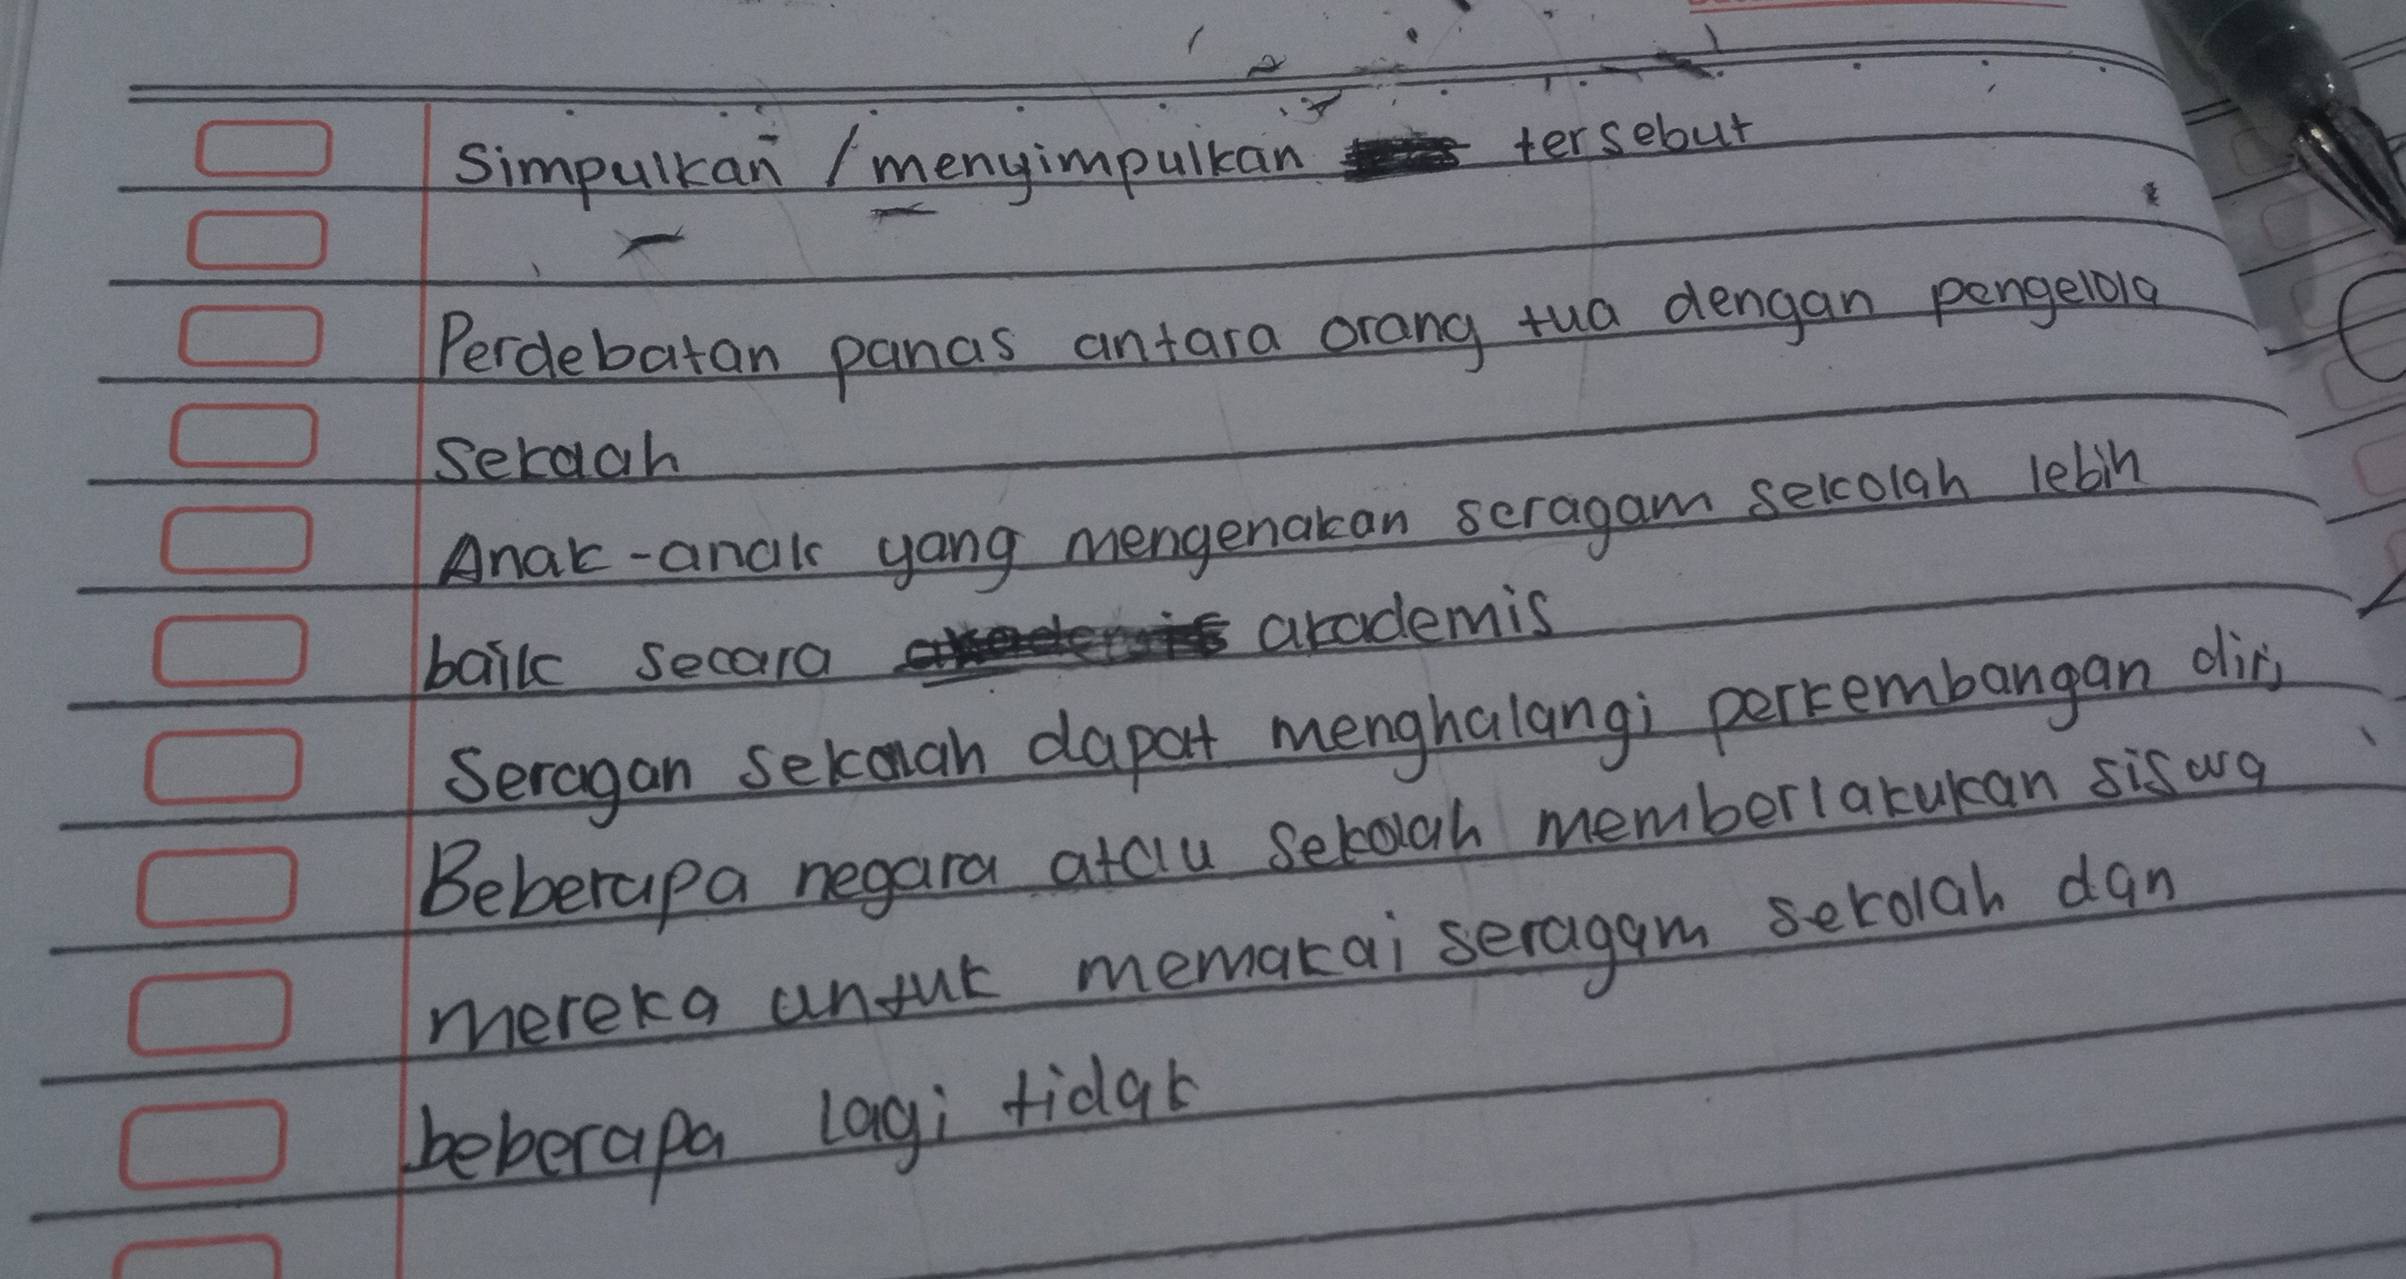 Simpulkan / menyimpulkan tersebut
Perdebatan panas antara orang tua dengan pengelola
sekolah
Anak-anak yang mengenakan seragam sekolah lebih
baik secara akademis
Seragan sekolah dapat menghalangi perkembangan diri
Beberapa negara atau sekolah memberlakukan siswa
mereka untuk memakai seragam sekolah dan
beberapa lagi tidak